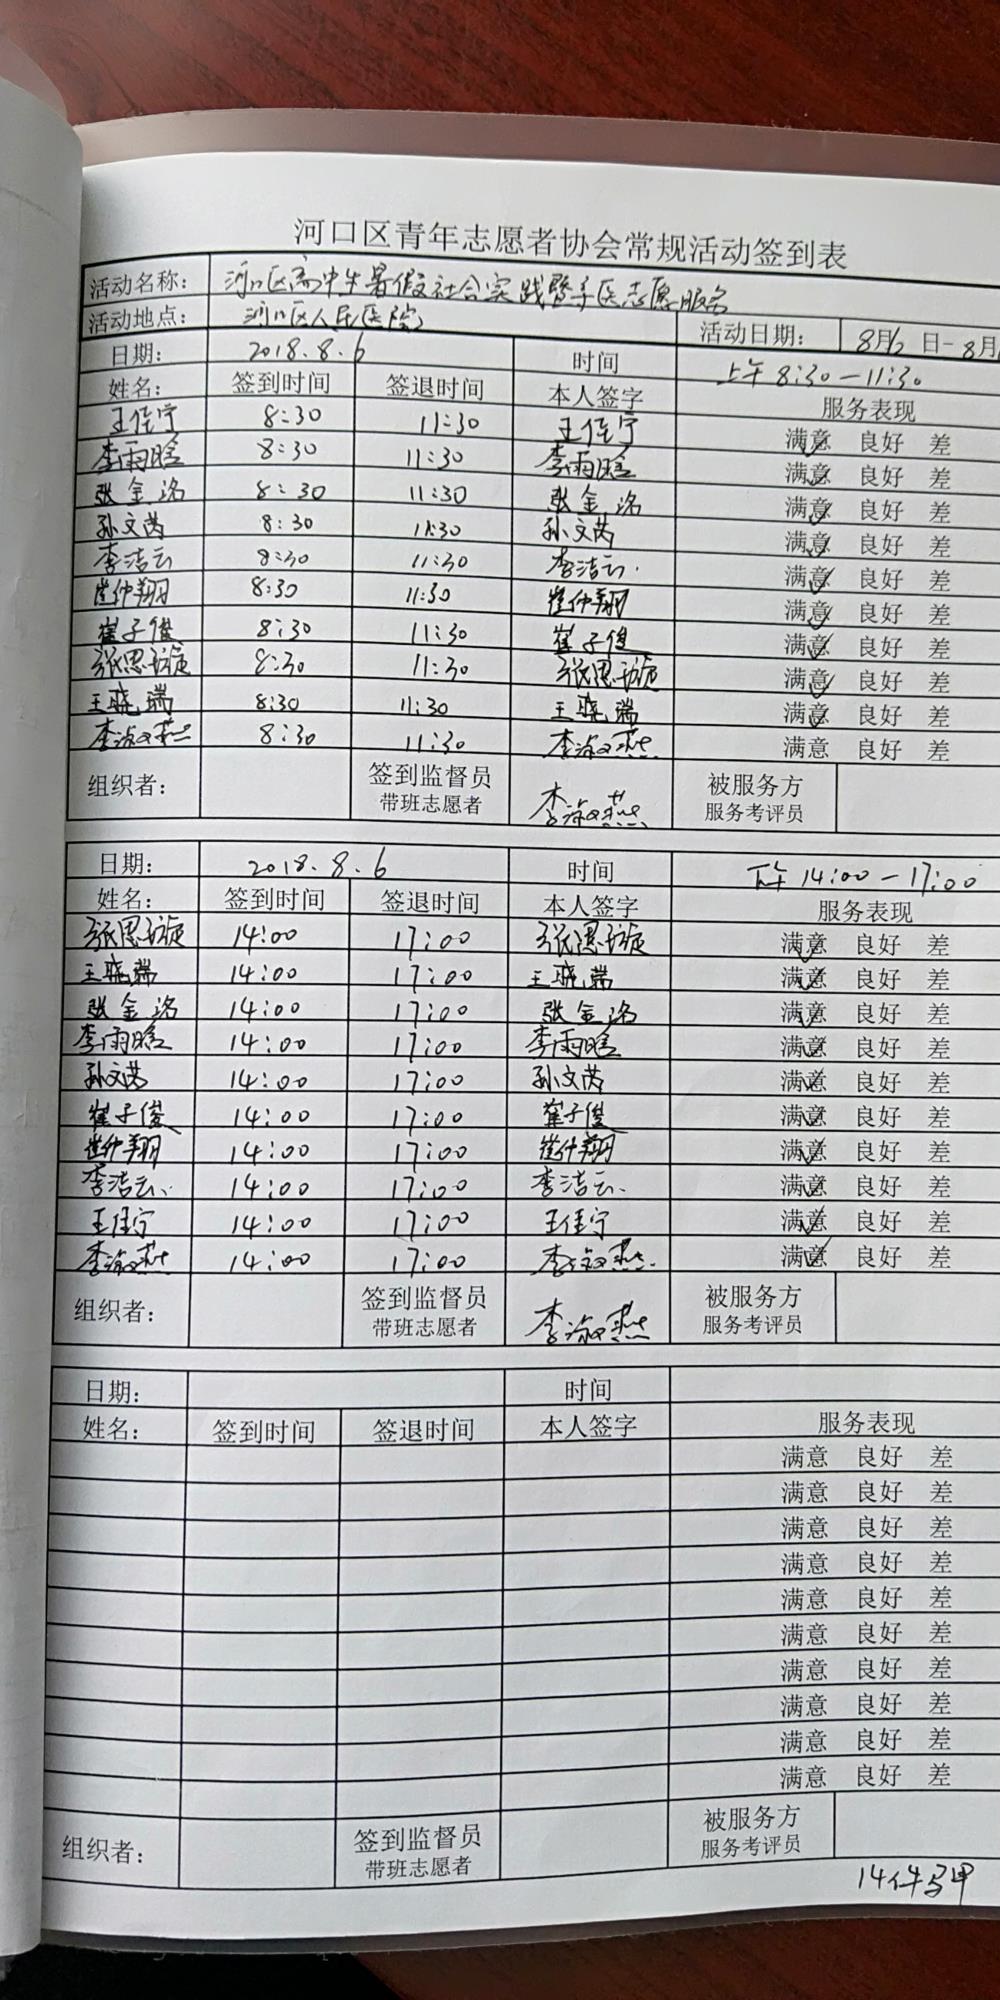 河口区青年志愿者协会常规活动签到表
活动名称： 河口区高中生暑假社会实践暨手医志愿服务
活动地点： 河口区人民医院 活动日期： 8月6日-8月
日期： 2018.8.6 时间 上午8:30—11:30
姓名： 签到时间 签退时间 本人签字 服务表现
王佳宁 8:30 11:30 王佳宁 满意 良好 差
李雨晗 8:30 11:30 李雨晗 满意 良好 差
张金洺 8:30 11:30 张金洺 满意 良好 差
孙文芮 8:30 11:30 孙文芮 满意 良好 差
李洁云 8:30 11:30 李洁云 满意 良好 差
崔仲翔 8:30 11:30 崔仲翔 满意 良好 差
崔子俊 8:30 11:30 崔子俊 满意 良好 差
张思璇 8:30 11:30 张思璇 满意 良好 差
王晓瑞 8:30 11:30 王晓瑞 满意 良好 差
李淑燕 8:30 11:30 李淑燕 满意 良好 差
组织者： 签到监督员 李淑燕 被服务方
带班志愿者 服务考评员
日期： 2018.8.6 时间 下午14:00—17:00
姓名： 签到时间 签退时间 本人签字 服务表现
张思璇 14:00 17:00 张思璇 满意 良好 差
王晓瑞 14:00 17:00 王晓瑞 满意 良好 差
张金洺 14:00 17:00 张金洺 满意 良好 差
李雨晗 14:00 17:00 李雨晗 满意 良好 差
孙文芮 14:00 17:00 孙文芮 满意 良好 差
崔子俊 14:00 17:00 崔子俊 满意 良好 差
崔仲翔 14:00 17:00 崔仲翔 满意 良好 差
李洁云 14:00 17:00 李洁云 满意 良好 差
王佳宁 14:00 17:00 王佳宁 满意 良好 差
李淑燕 14:00 17:00 李淑燕 满意 良好 差
组织者： 签到监督员 李淑燕 被服务方
带班志愿者 服务考评员
日期： 时间
姓名： 签到时间 签退时间 本人签字 服务表现
满意 良好 差
满意 良好 差
满意 良好 差
满意 良好 差
满意 良好 差
满意 良好 差
满意 良好 差
满意 良好 差
满意 良好 差
满意 良好 差
组织者： 签到监督员 被服务方
带班志愿者 服务考评员
14件马甲